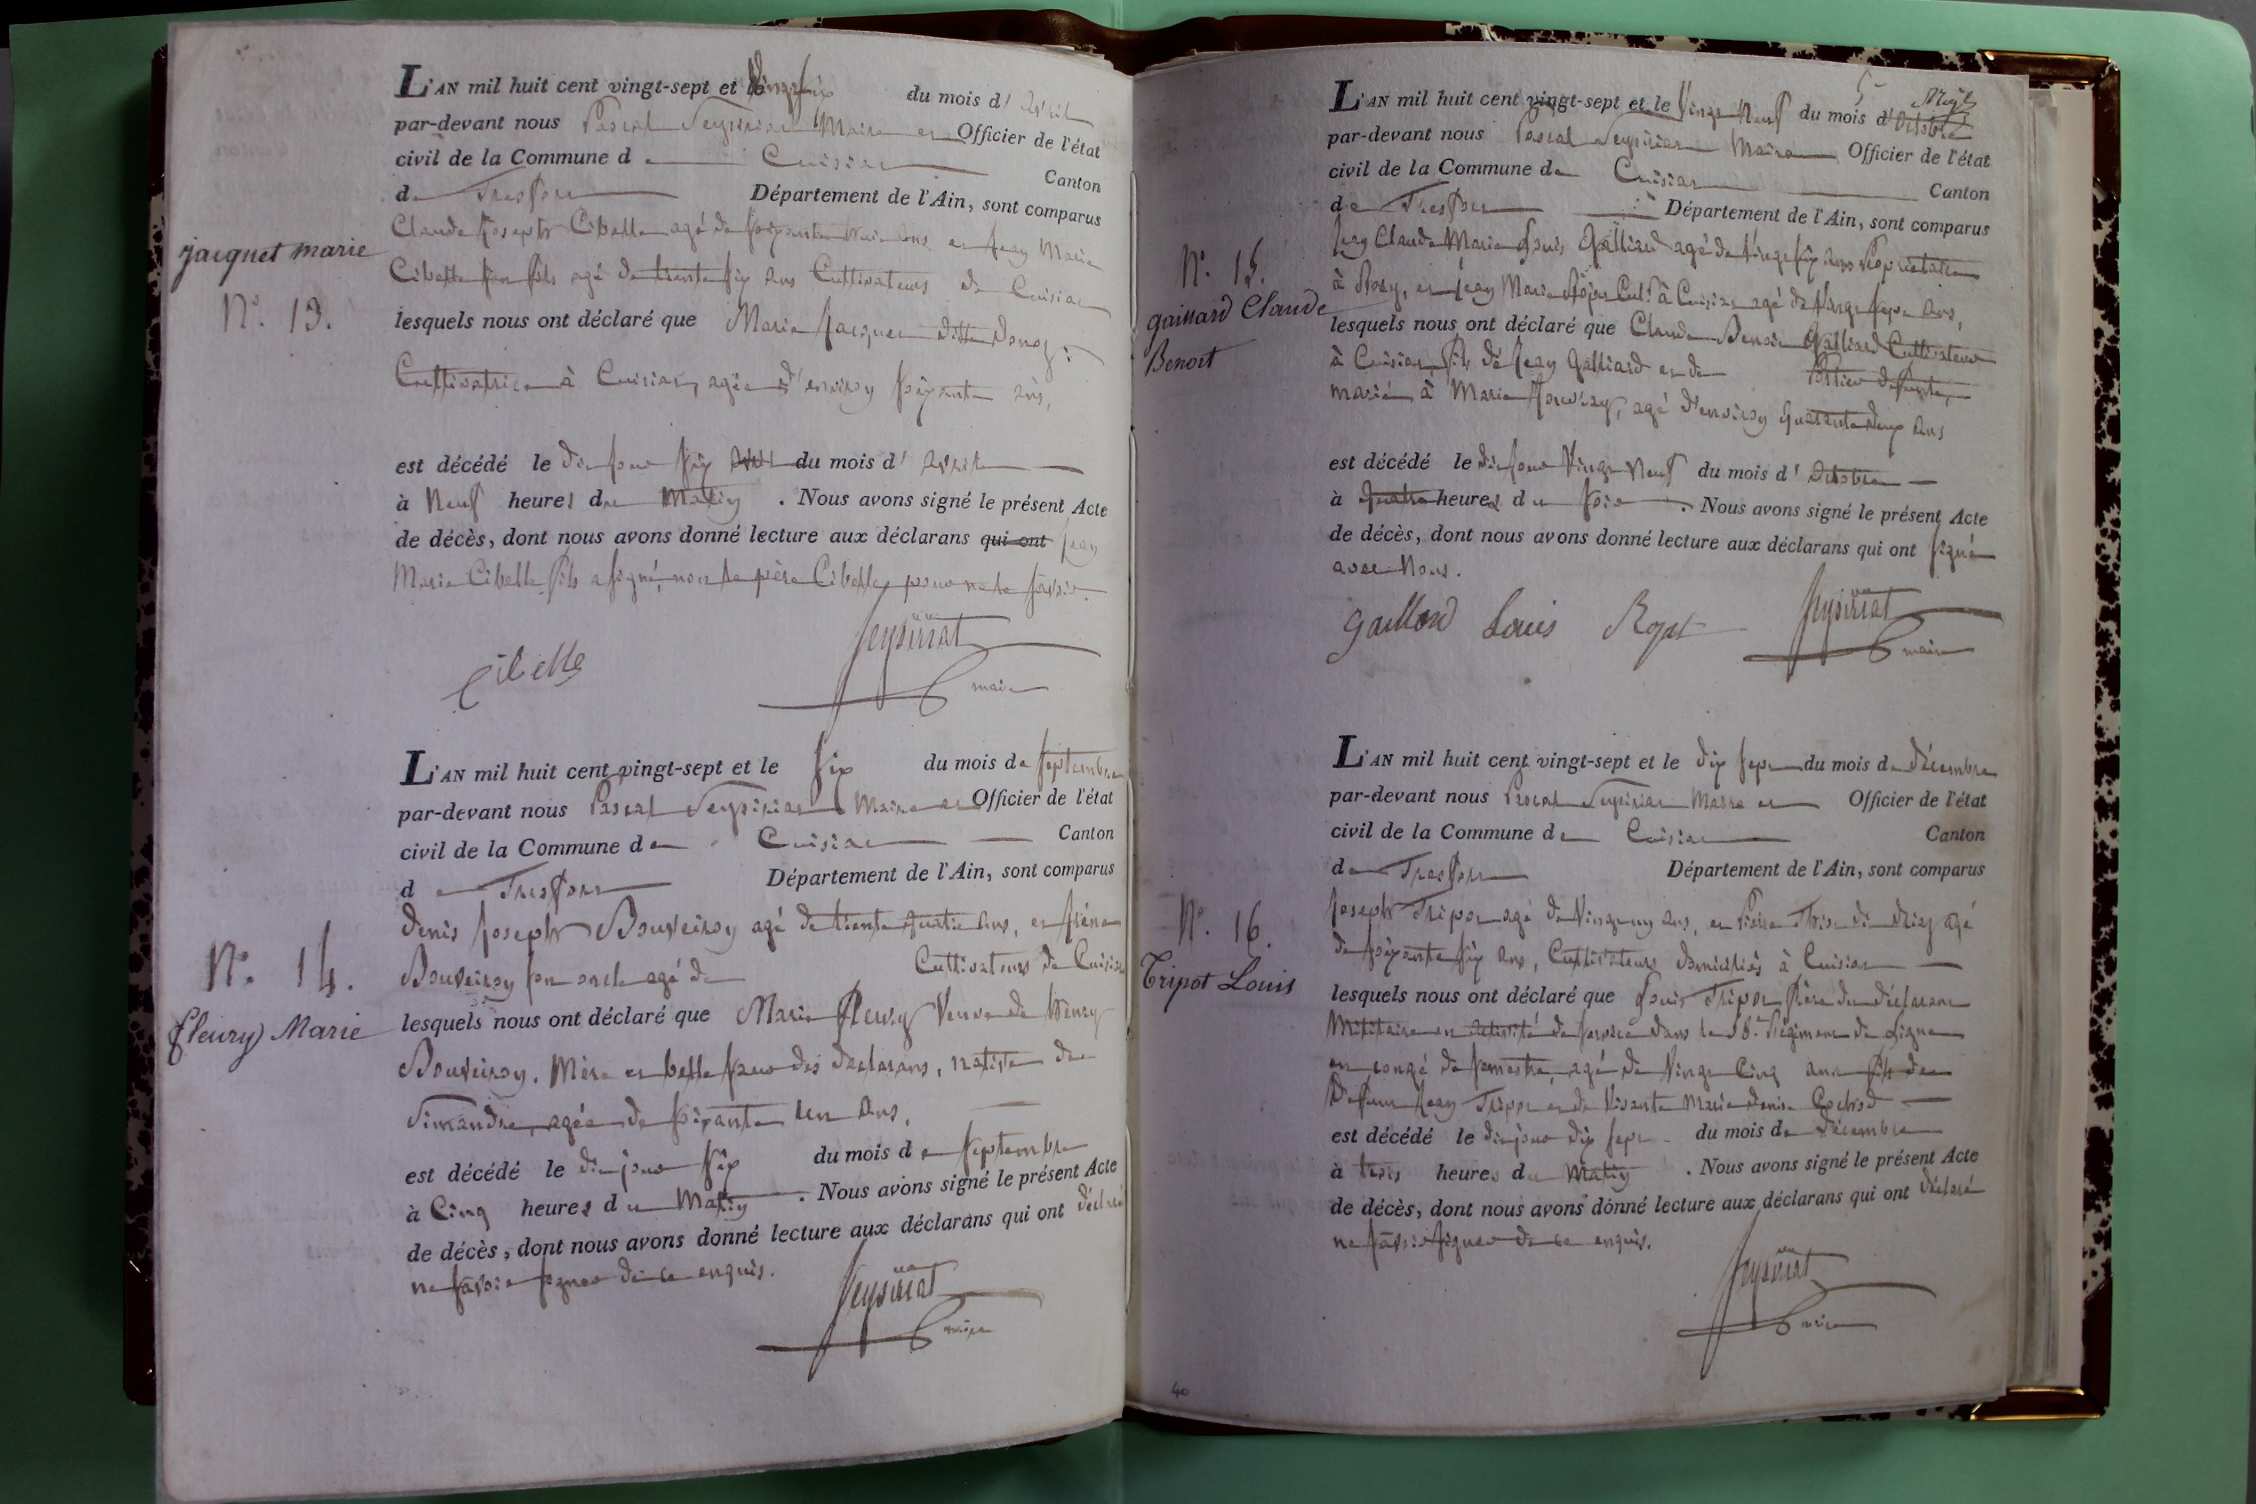 L'AN mil huit cent vingt-sept et le vingt six du mois d' avril
par-devant nous Pascal Seysiriat Maire et Officier de l'état
civil de la Commune d Cuisiat Canton
de Tresfort Département de l'Ain, sont comparus
Claude Joseph Cibelle agé de soixante huit ans et Jean Marie
Cibelle son fils agé de trente six ans Cultivateurs de Cuisiat
jacquet marie
N°. 13.
lesquels nous ont déclaré que Marie Jacquet ditte
Cultivatrice à Cuisiat, agée d'environ soixante ans,
est décédé le dit jour six du mois d' avril
à Neuf heures du Matin . Nous avons signé le présent Acte
de décès, dont nous avons donné lecture aux déclarans qui ont Jean
Marie Cibelle fils a signé, non le père Cibelle, pour ne le savoir.
Cibelle Seysiriat
maire
L'AN mil huit cent vingt-sept et le six du mois de septembre
par-devant nous Pascal Seysiriat Maire et Officier de l'état
civil de la Commune de Cuisiat Canton
d e Tresfort Département de l'Ain, sont comparus
denis Joseph Bouveiron agé de trente quatre ans, et
N°. 14.
Bouveiron son oncle agé de Cultivateurs de Cuisiat
fleury Marie
lesquels nous ont déclaré que Marie fleury Veuve de
Bouveiron. Mère et belle sœur des déclarans, native de
Simandre, agée de soixante un ans,
est décédé le dit jour six du mois d e septembre
à Cinq heures du Matin . Nous avons signé le présent Acte
de décès, dont nous avons donné lecture aux déclarans qui ont déclaré
ne savoir signer de ce enquis.
Seysiriat
maire
5
L'AN mil huit cent vingt-sept et le Vingt Neuf du mois d'Octobre
par-devant nous Pascal Seysiriat Maire Officier de l'état
civil de la Commune de Cuisiat Canton
de Tresfort Département de l'Ain, sont comparus
Jean Claude Marie Louis Galliard agé de Vingt six ans Propriétaire
N°. 15.
à et Jean Marie à Cuisiat agé de Vingt sept ans,
gaillard Claude
Benoit
lesquels nous ont déclaré que Claude Benoit Galliard Cultivateur
à Cuisiat, fils de Jean Galliard et de défunte,
marié à Marie agé d'environ quarante deux ans
est décédé le dit jour Vingt Neuf du mois d' Octobre
à quatre heures du soir . Nous avons signé le présent Acte
de décès, dont nous avons donné lecture aux déclarans qui ont signé
avec Nous.
Gaillard Louis Seysiriat
maire
L'AN mil huit cent vingt-sept et le dix sept du mois de décembre
par-devant nous Pascal Seysiriat Maire et Officier de l'état
civil de la Commune de Cuisiat Canton
de Tresfort Département de l'Ain, sont comparus
Joseph Tripot agé de Vingt un ans, et agé
N°. 16.
de soixante six ans, Cultivateurs domiciliés à Cuisiat
Tripot Louis
lesquels nous ont déclaré que Louis Tripot frère du déclarant
Militaire en activité de service dans le Régiment de Ligne
en congé de semestre, agé de Vingt Cinq ans fils de
Defunt Jean Tripot et de Vivante Marie denise
est décédé le dit jour dix sept du mois de décembre
à trois heures du Matin . Nous avons signé le présent Acte
de décès, dont nous avons donné lecture aux déclarans qui ont déclaré
ne savoir signer de ce enquis.
Seysiriat
maire
40